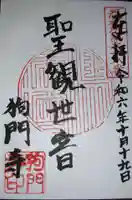 奉拝 令和六年十月十七日
聖觀世音
狗門寺